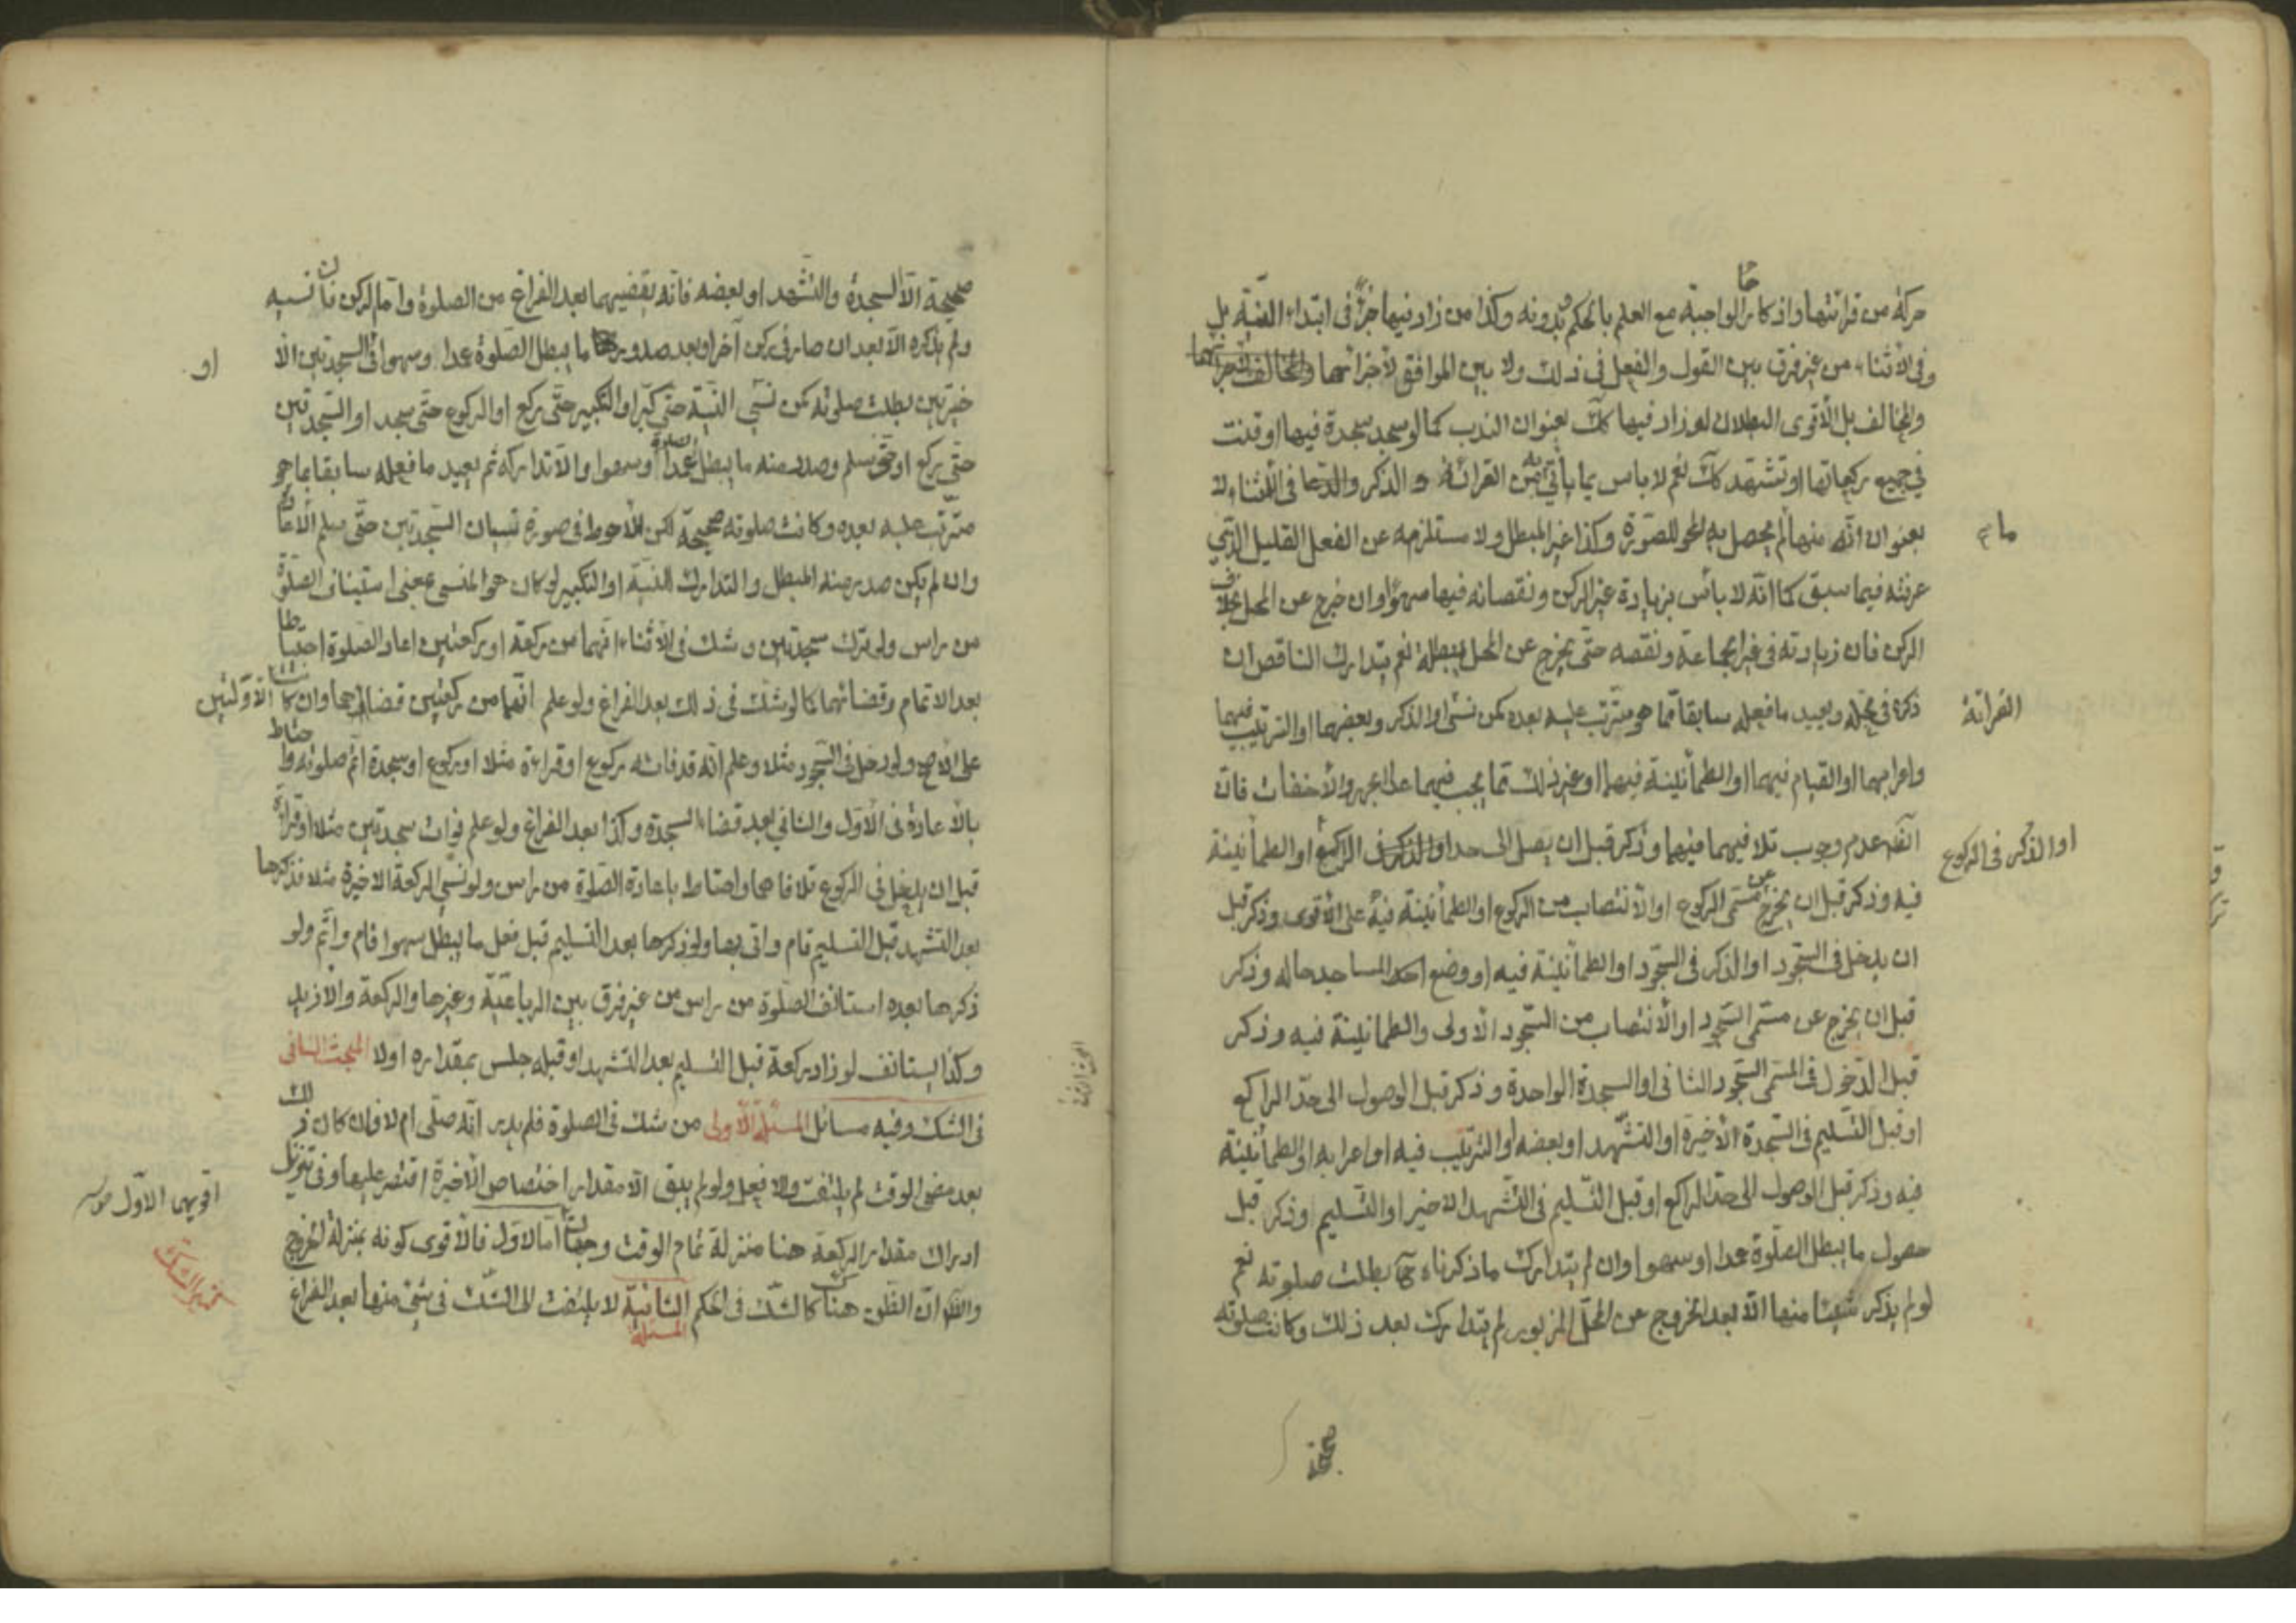 حركة من قرائتها واذكارها الواجبة مع العلم بالحكم وبدونه وكذا من زاد فيها جزءً في ابتداء النية بل
وفى الاثناء من غير فرق بين القول والفعل فى ذلك ولا بين الموافق لاجزائها والمخالف
والمخالف بل الاقوى البطلان لو زاد فيها كك بعنوان الندب كما لو سجد سجدة فيها او قنت
في جميع ركعاتها او تشهد كك نعم لا باس بما يأتي به من القرائة و الذكر والدعا فى الاثناء لا
بعنوان انه منها ما لم يحصل به المحو للصورة وكذا غير المبطل ولا مستلزمه عن الفعل القليل الذي
عرفته فيما سبق كما انه لا بأس بزيادة غير الركن ونقصانه فيها سهوًا وان خرج عن المحل بخلاف
الركن فان زيادته فى غير الجماعة ونقصه حتى يخرج عن المحل مبطلة نعم يتدارك الناقص ان
ذكره فى محله ويعيد ما فعله سابقا مما هو مترتب عليه بعده كمن نسى القرائة او الذكر وبعضها او الترتيب فيها
واعرابهما او القيام فيهما او الطمأنينة فيهما او غير ذلك مما يجب فيهما عدا الجهر والاخفات فان
الظ عدم وجوب تلافيهما فيهما وذكر قبل ان يصل الى حد الراكع او الذكر فى الركوع او الطمأنينة
فيه وذكر قبل ان يخرج عن مسمى الركوع او الانتصاب من الركوع او الطمأنينة فيه على الاقوى وذكر قبل
ان يدخل فى السجود او الذكر فى السجود او الطمأنينة فيه او وضع احد المساجد حاله وذكر
قبل ان يخرج عن مسمى السجود او الانتصاب من السجود الاولى والطمانينة فيه وذكر
قبل الدخول فى المسمى السجود الثانى او السجدة الواحدة وذكر قبل الوصول الى حد الراكع
او قبل التسليم فى السجدة الاخيرة او التشهد او بعضه او الترتيب فيه او اعرابه او الطمأنينة
فيه وذكر قبل الوصول الى حد الراكع او قبل التسليم فى التشهد الاخير او التسليم وذكر قبل
حصول ما يبطل الصلوة عمدا وسهوا وان لم يتدارك ما ذكرناه بطلت صلوته نعم
لو لم يذكر شيئا منها الا بعد الخروج عن المحل المزبور لم يتدارك بعد ذلك وكانت صلوته
صحيحة
صحيحة الا السجدة والتشهد او بعضه فانه يقضيهما بعد الفراغ من الصلوة واما الركن فان نسيه
ولم يذكره الا بعد ان صار فى ركن آخر او بعد صدور ما يبطل الصلوة عمدا او سهوا فى السجدتين الا
خيرتين بطلت صلوته كمن نسى النية حتى كبر او التكبير حتى ركع او الركوع حتى سجد او السجدتين
حتى ركع او حتى سلم وصدر منه ما يبطل الصلوة عمدا وسهوا والا تداركه ثم يعيد ما فعله سابقا مما هو
مترتب عليه بعده وكانت صلوته صحيحة لكن الاحوط فى صورة نسيان السجدتين حتى سلم الاعادة
وان لم يكن صدر منه المبطل والتدارك النية او التكبير لو كان هو المنسى بمعنى استيناف الصلوة
من راس ولو ترك سجدتين وشك فى الاثناء انهما من ركعة او ركعتين اعاد الصلوة احتياطا
بعد الاتمام وقضائهما كما لو شك فى ذلك بعد الفراغ ولو علم انهما من ركعتين قضاهما وان كانتا الاولتين
على الاصح ولو دخل فى السجود مثلا وعلم انه قد فاته ركوع او قراءة مثلا او ركوع او سجدة اتم صلوته واحتاط
بالاعادة فى الاول والثانى بعد قضاء السجدة وكذا بعد الفراغ ولو علم فوات سجدتين مثلا او قرائة
قبل ان يدخل فى الركوع تلافاهما واحتاط باعادة الصلوة من راس ولو نسى الركعة الاخيرة مثلا فذكرها
بعد التشهد قبل التسليم قام واتى بها ولو ذكرها بعد التسليم قبل فعل ما يبطل سهوا قام واتم ولو
ذكرها بعده استانف الصلوة من راس من غير فرق بين الرباعية وغيرها والركعة والازيد
وكذا يستانف لو زاد ركعة قبل التسليم بعد التشهد او قبله جلس بمقداره اولا المبحث الثانى
فى الشك وفيه مسائل المسئلة الاولى من شك فى الصلوة فلم يدر انه صلى ام لا فان كان ذلك
بعد مضى الوقت لم يلتفت والا فعل ولو لم يبق الا مقدار اختصاص الاخيرة اقتصر عليها وفى تنزيل
ادراك مقدار الركعة هنا منزلة تمام الوقت وجهان اما الاول فالاقوى كونه بمنزلة الخروج
والظ ان الظن هنا كالشك فى الحكم المسئلة الثانية لا يلتفت الى الشك فى شئ منها بعد الفراغ
اقويهما الاول